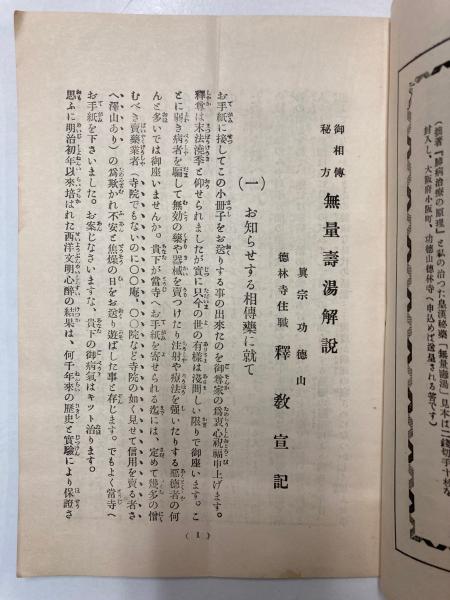 (拙著『肺病治療の原理』と私の治つた皇漢秘藥「無量壽湯」見本は二錢切手十枚な
封入し、大阪府小阪町、功德山德林寺へ申込めば送呈される筈です)
御相傳
秘方
無量壽湯解說
眞宗功德山
德林寺住職 釋敎宣記
(一) お知らせする相傳藥に就て
お手紙に接してこの小冊子をお送りする事の出來たのを御尊家の爲衷心祝福申上げます。
釋尊は末法澆季と仰せられましたが實に只今の世の有樣は淺間しい限りで御座います。こ
とに弱き病者を騙して無効の藥や器械を賣つけたり注射や療法を强いたりする惡德者の何
んと多いでは御座いませんか。貴下が當寺へお手紙を寄せられる迄には、定めて幾多の僧
むべき賣藥業者(寺院でもないのに〇〇庵、〇〇院など寺院の如く見せて信用を賣る者さ
へ澤山あり)の爲欺かれ不安と焦燥の日をお送り遊ばした事と存じます。でもよく當寺へ
お手紙を下さいました。お案じなさいますな、貴下の御病氣はキツト治ります。
思ふに明治初年以來培はれた西洋文明心醉の結果は、何千年來の歷史と實驗により保證さ
(1)